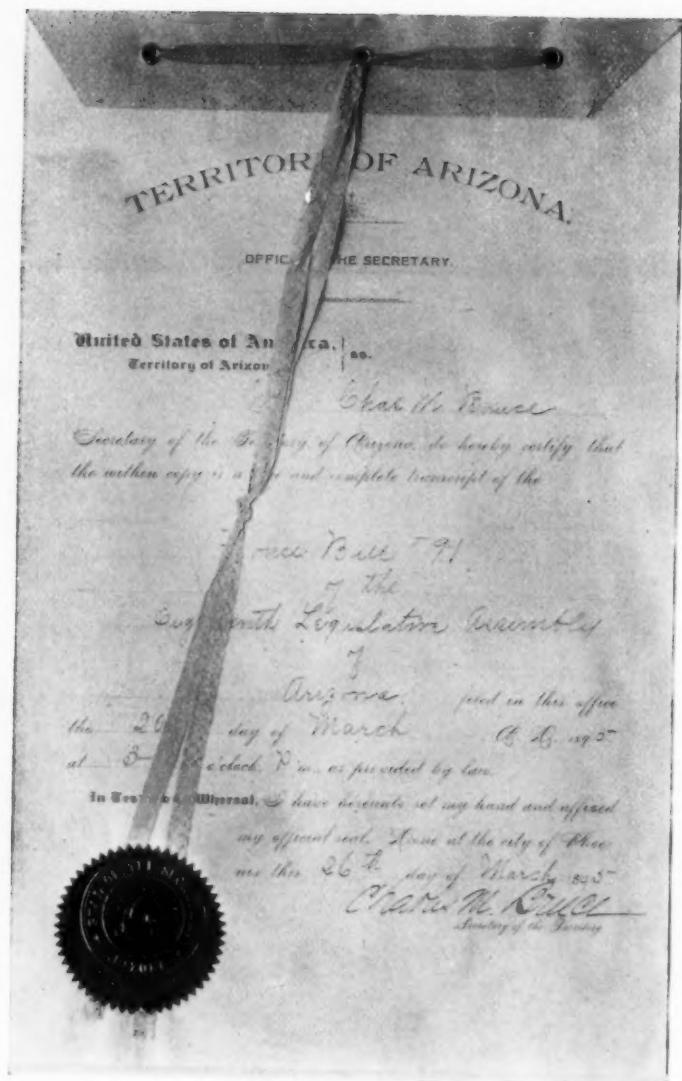 TERRITORY OF ARIZONA.
OFFICE THE SECRETARY.
United States of America, } ss.
Territory of Arizona
Chas M. Bruce
Secretary of the Territory of Arizona, do hereby certify that
the within copy is a true and complete transcript of the
House Bill 91
of the
Eighteenth Legislative Assembly
of
Arizona, filed in this office
the 26 day of March A. D. 1895
at o'clock P m., as provided by law.
In Testimony Whereof, I have hereunto set my hand and affixed
my official seal. Done at the city of Phoe-
nix this 26th day of March 1895
Charles M. Bruce
Secretary of the Territory